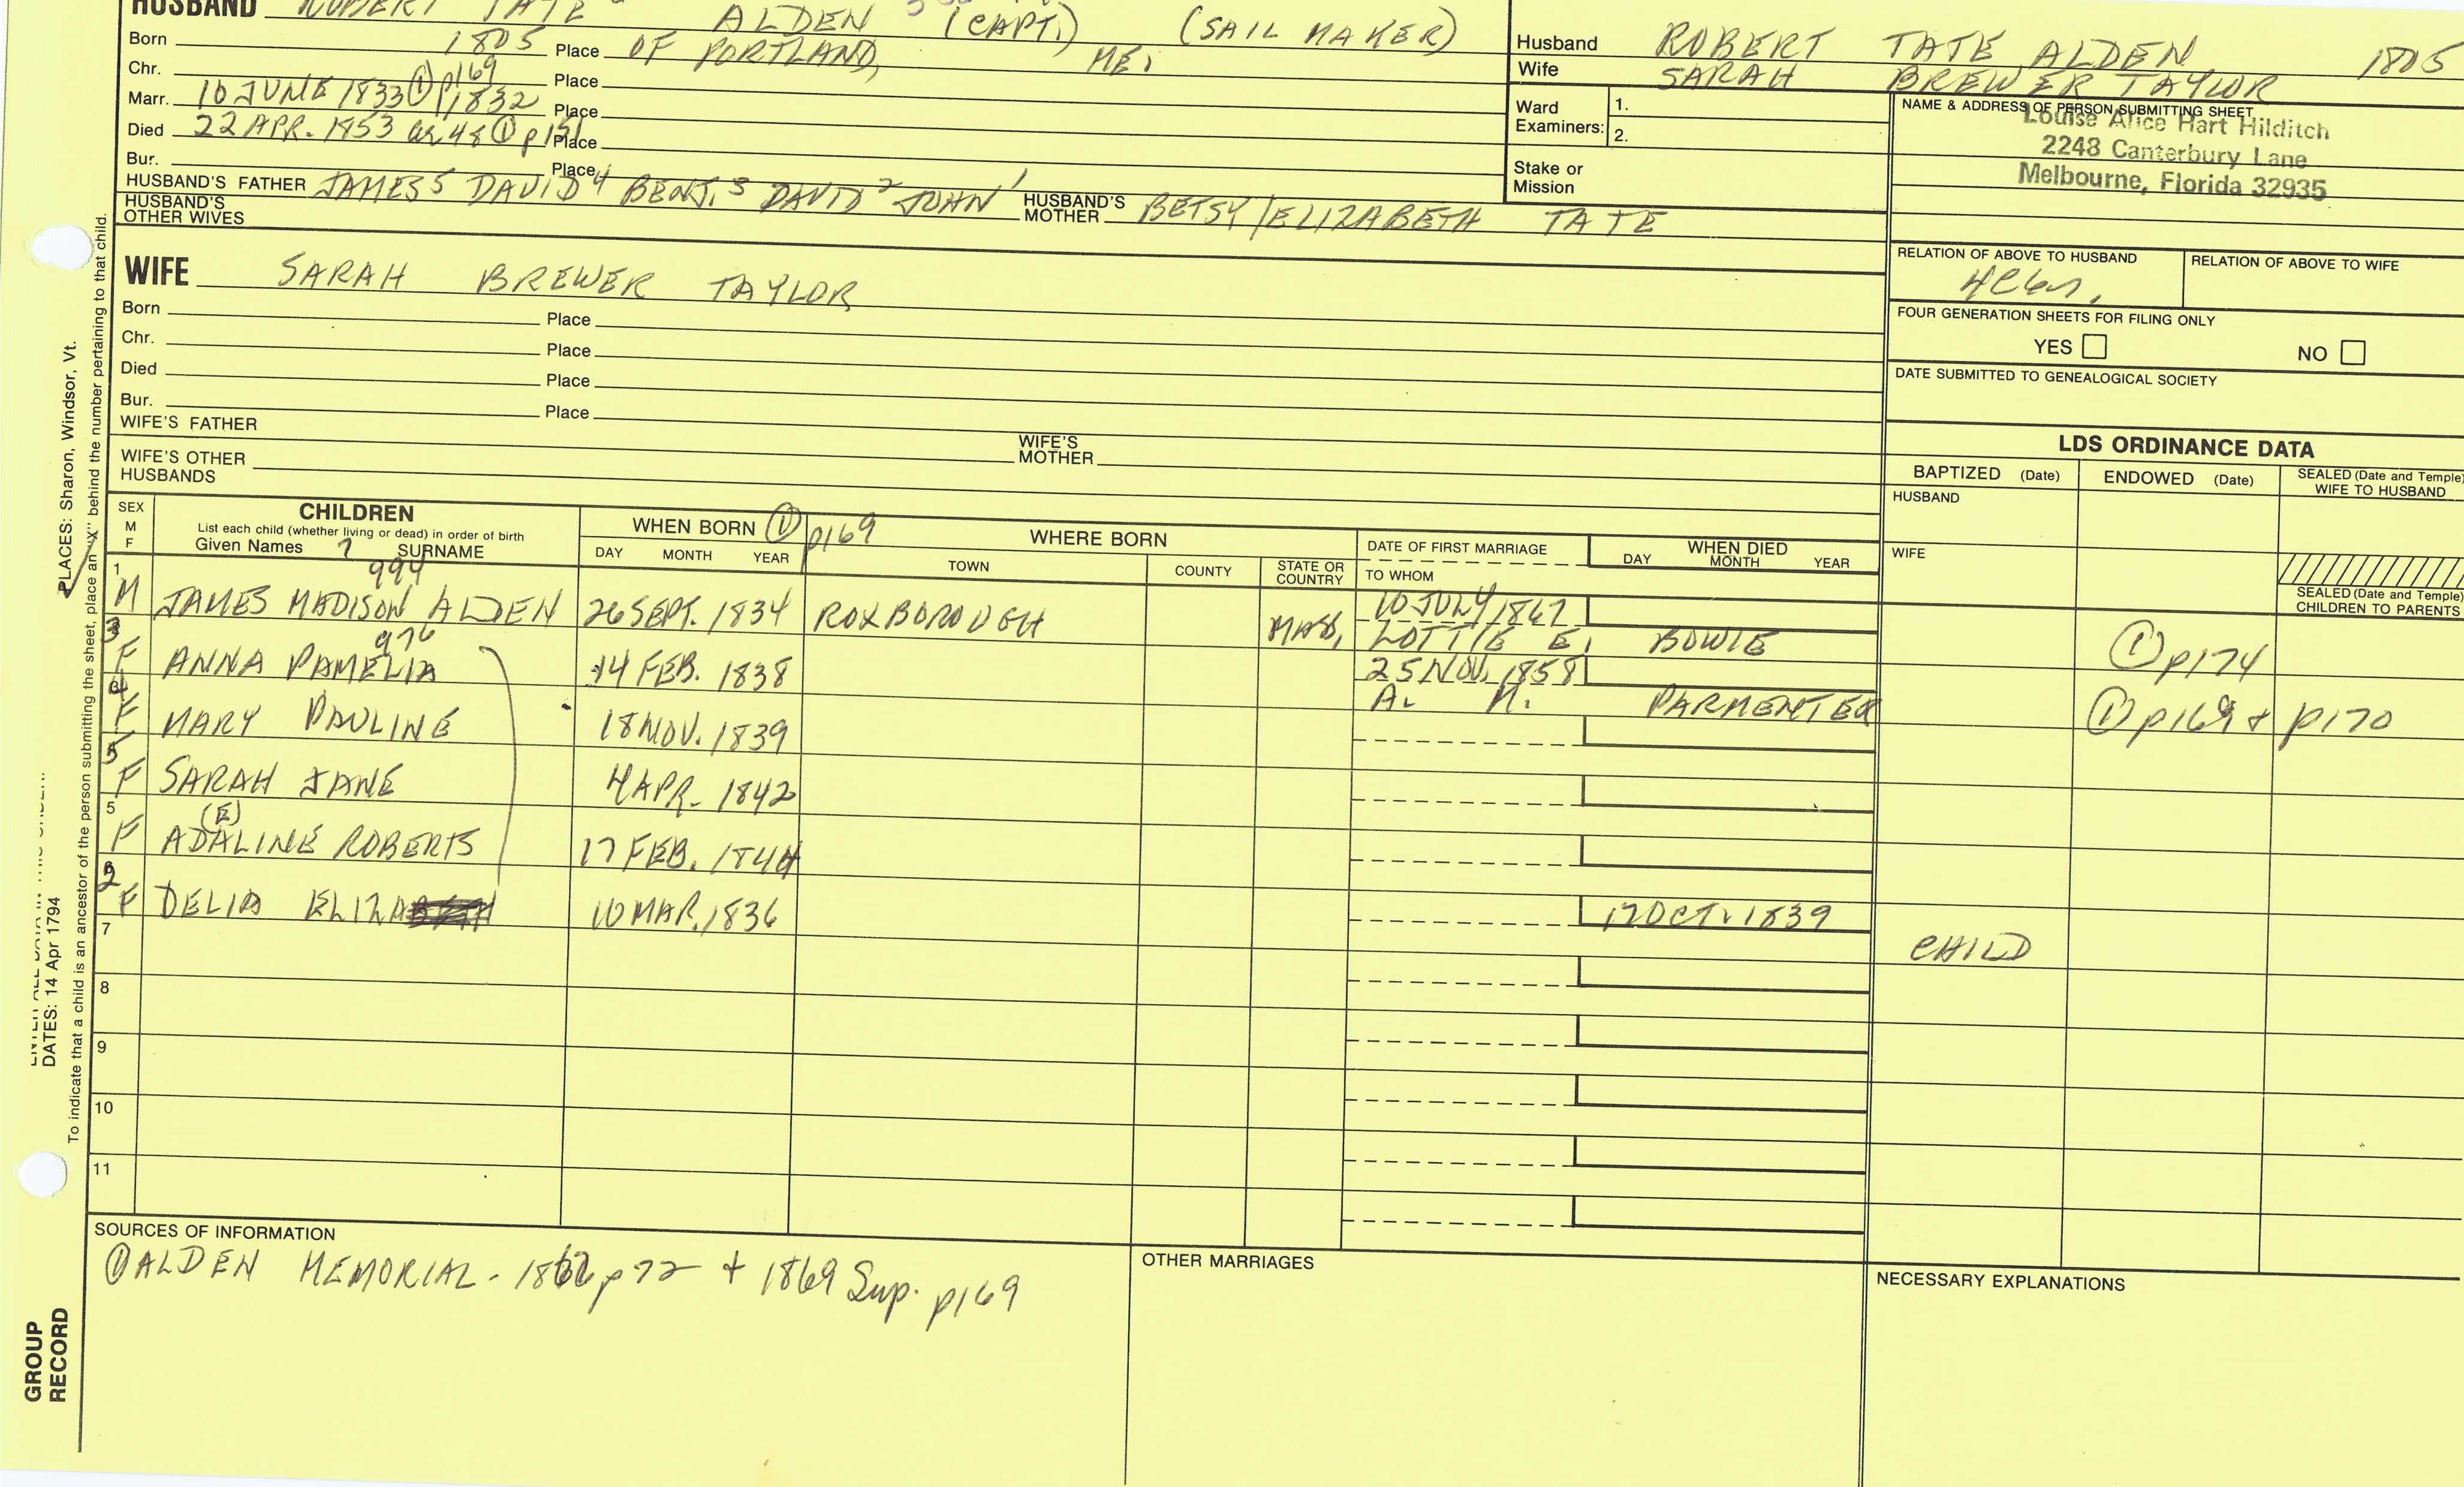 HUSBAND ROBERT TATE ALDEN (CAPT.) (SAIL MAKER)
Born 1805 Place OF PORTLAND, ME.
Chr. Place
Marr. 10 JUNE 1833 ① p169 / 1832 Place
Died 22 APR. 1853 ae 48 ① p151 Place
Bur. Place
HUSBAND'S FATHER JAMES5 DAVID4 BENJ.3 DAVID2 JOHN1 HUSBAND'S MOTHER BETSY/ELIZABETH TATE
HUSBAND'S OTHER WIVES
WIFE SARAH BREWER TAYLOR
Born Place
Chr. Place
Died Place
Bur. Place
WIFE'S FATHER WIFE'S MOTHER
WIFE'S OTHER HUSBANDS
Husband ROBERT TATE ALDEN 1805
Wife SARAH BREWER TAYLOR
Ward Examiners: 1.
2.
Stake or Mission
NAME & ADDRESS OF PERSON SUBMITTING SHEET
Louise Alice Hart Hilditch
2248 Canterbury Lane
Melbourne, Florida 32935
RELATION OF ABOVE TO HUSBAND RELATION OF ABOVE TO WIFE
FOUR GENERATION SHEETS FOR FILING ONLY
YES NO
DATE SUBMITTED TO GENEALOGICAL SOCIETY
LDS ORDINANCE DATA
BAPTIZED (Date) ENDOWED (Date) SEALED (Date and Temple) WIFE TO HUSBAND
HUSBAND
WIFE
SEALED (Date and Temple) CHILDREN TO PARENTS
SEX M F
CHILDREN
List each child (whether living or dead) in order of birth
Given Names 7 SURNAME
WHEN BORN ① p169
DAY MONTH YEAR
WHERE BORN
TOWN COUNTY STATE OR COUNTRY
DATE OF FIRST MARRIAGE
TO WHOM
WHEN DIED
DAY MONTH YEAR
1 M JAMES MADISON 994 ALDEN 26 SEPT. 1834 ROXBOROUGH MASS. 10 JULY 1867 LOTTIE E. BOWIE ① p174
3 F ANNA PAMELIA 976 14 FEB. 1838 25 NOV. 1858 A. M. PARMENTER ① p169 + p170
4 F MARY PAULINE 18 NOV. 1839
5 F SARAH JANE 4 APR. 1842
5 F ADALINE (E) ROBERTS 17 FEB. 1844
2 F DELIA ELIZA 10 MAR. 1836 17 OCT. 1839 CHILD
7
8
9
10
11
SOURCES OF INFORMATION
① ALDEN MEMORIAL - 1867 p 72 + 1869 Sup. p169
OTHER MARRIAGES
NECESSARY EXPLANATIONS
PLACES: Sharon, Windsor, Vt.
DATES: 14 Apr 1794
To indicate that a child is an ancestor of the person submitting the sheet, place an "X" behind the number pertaining to that child.
GROUP
RECORD